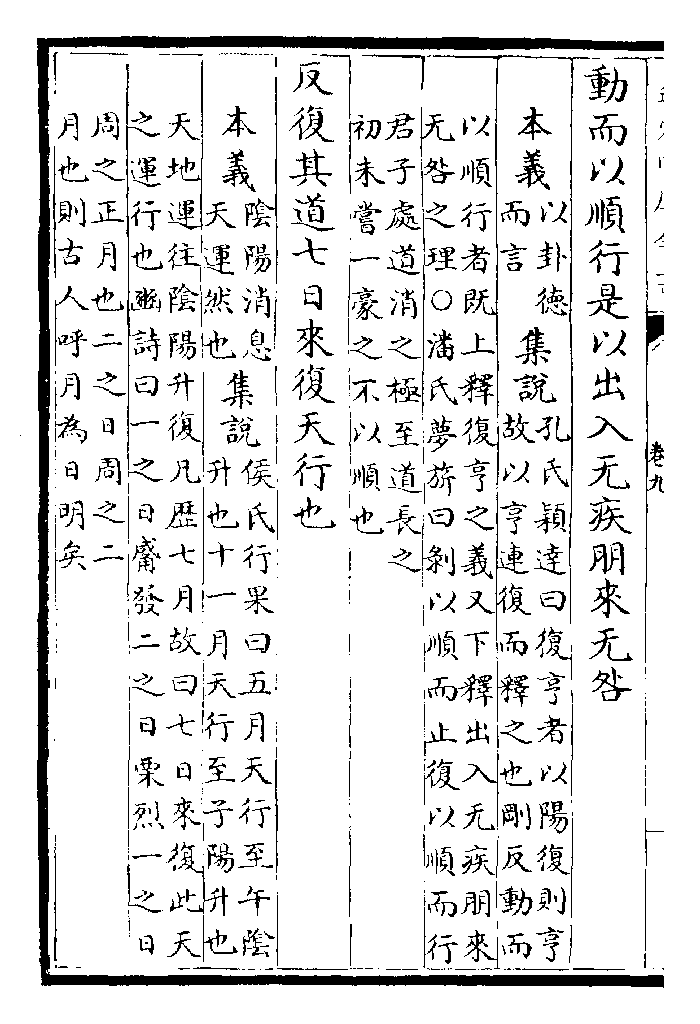 卷九
動而以順行是以出入无疾朋來无咎
本義
以卦德
而言
集說
孔氏穎達曰復亨者以陽復則亨
故以亨連復而釋之也剛反動而
以順行者既上釋復亨之義又下釋出入无疾朋來
无咎之理○潘氏夢旂曰剝以順而止復以順而行
君子處道消之極至道長之
初未嘗一豪之不以順也
反復其道七日來復天行也
本義
陰陽消息
天運然也
集說
侯氏行果曰五月天行至午陰
升也十一月天行至子陽升也
天地運往陰陽升復凡歴七月故曰七日來復此天
之運行也豳詩曰一之日觱發二之日栗烈一之日
周之正月也二之日周之二
月也則古人呼月為日明矣